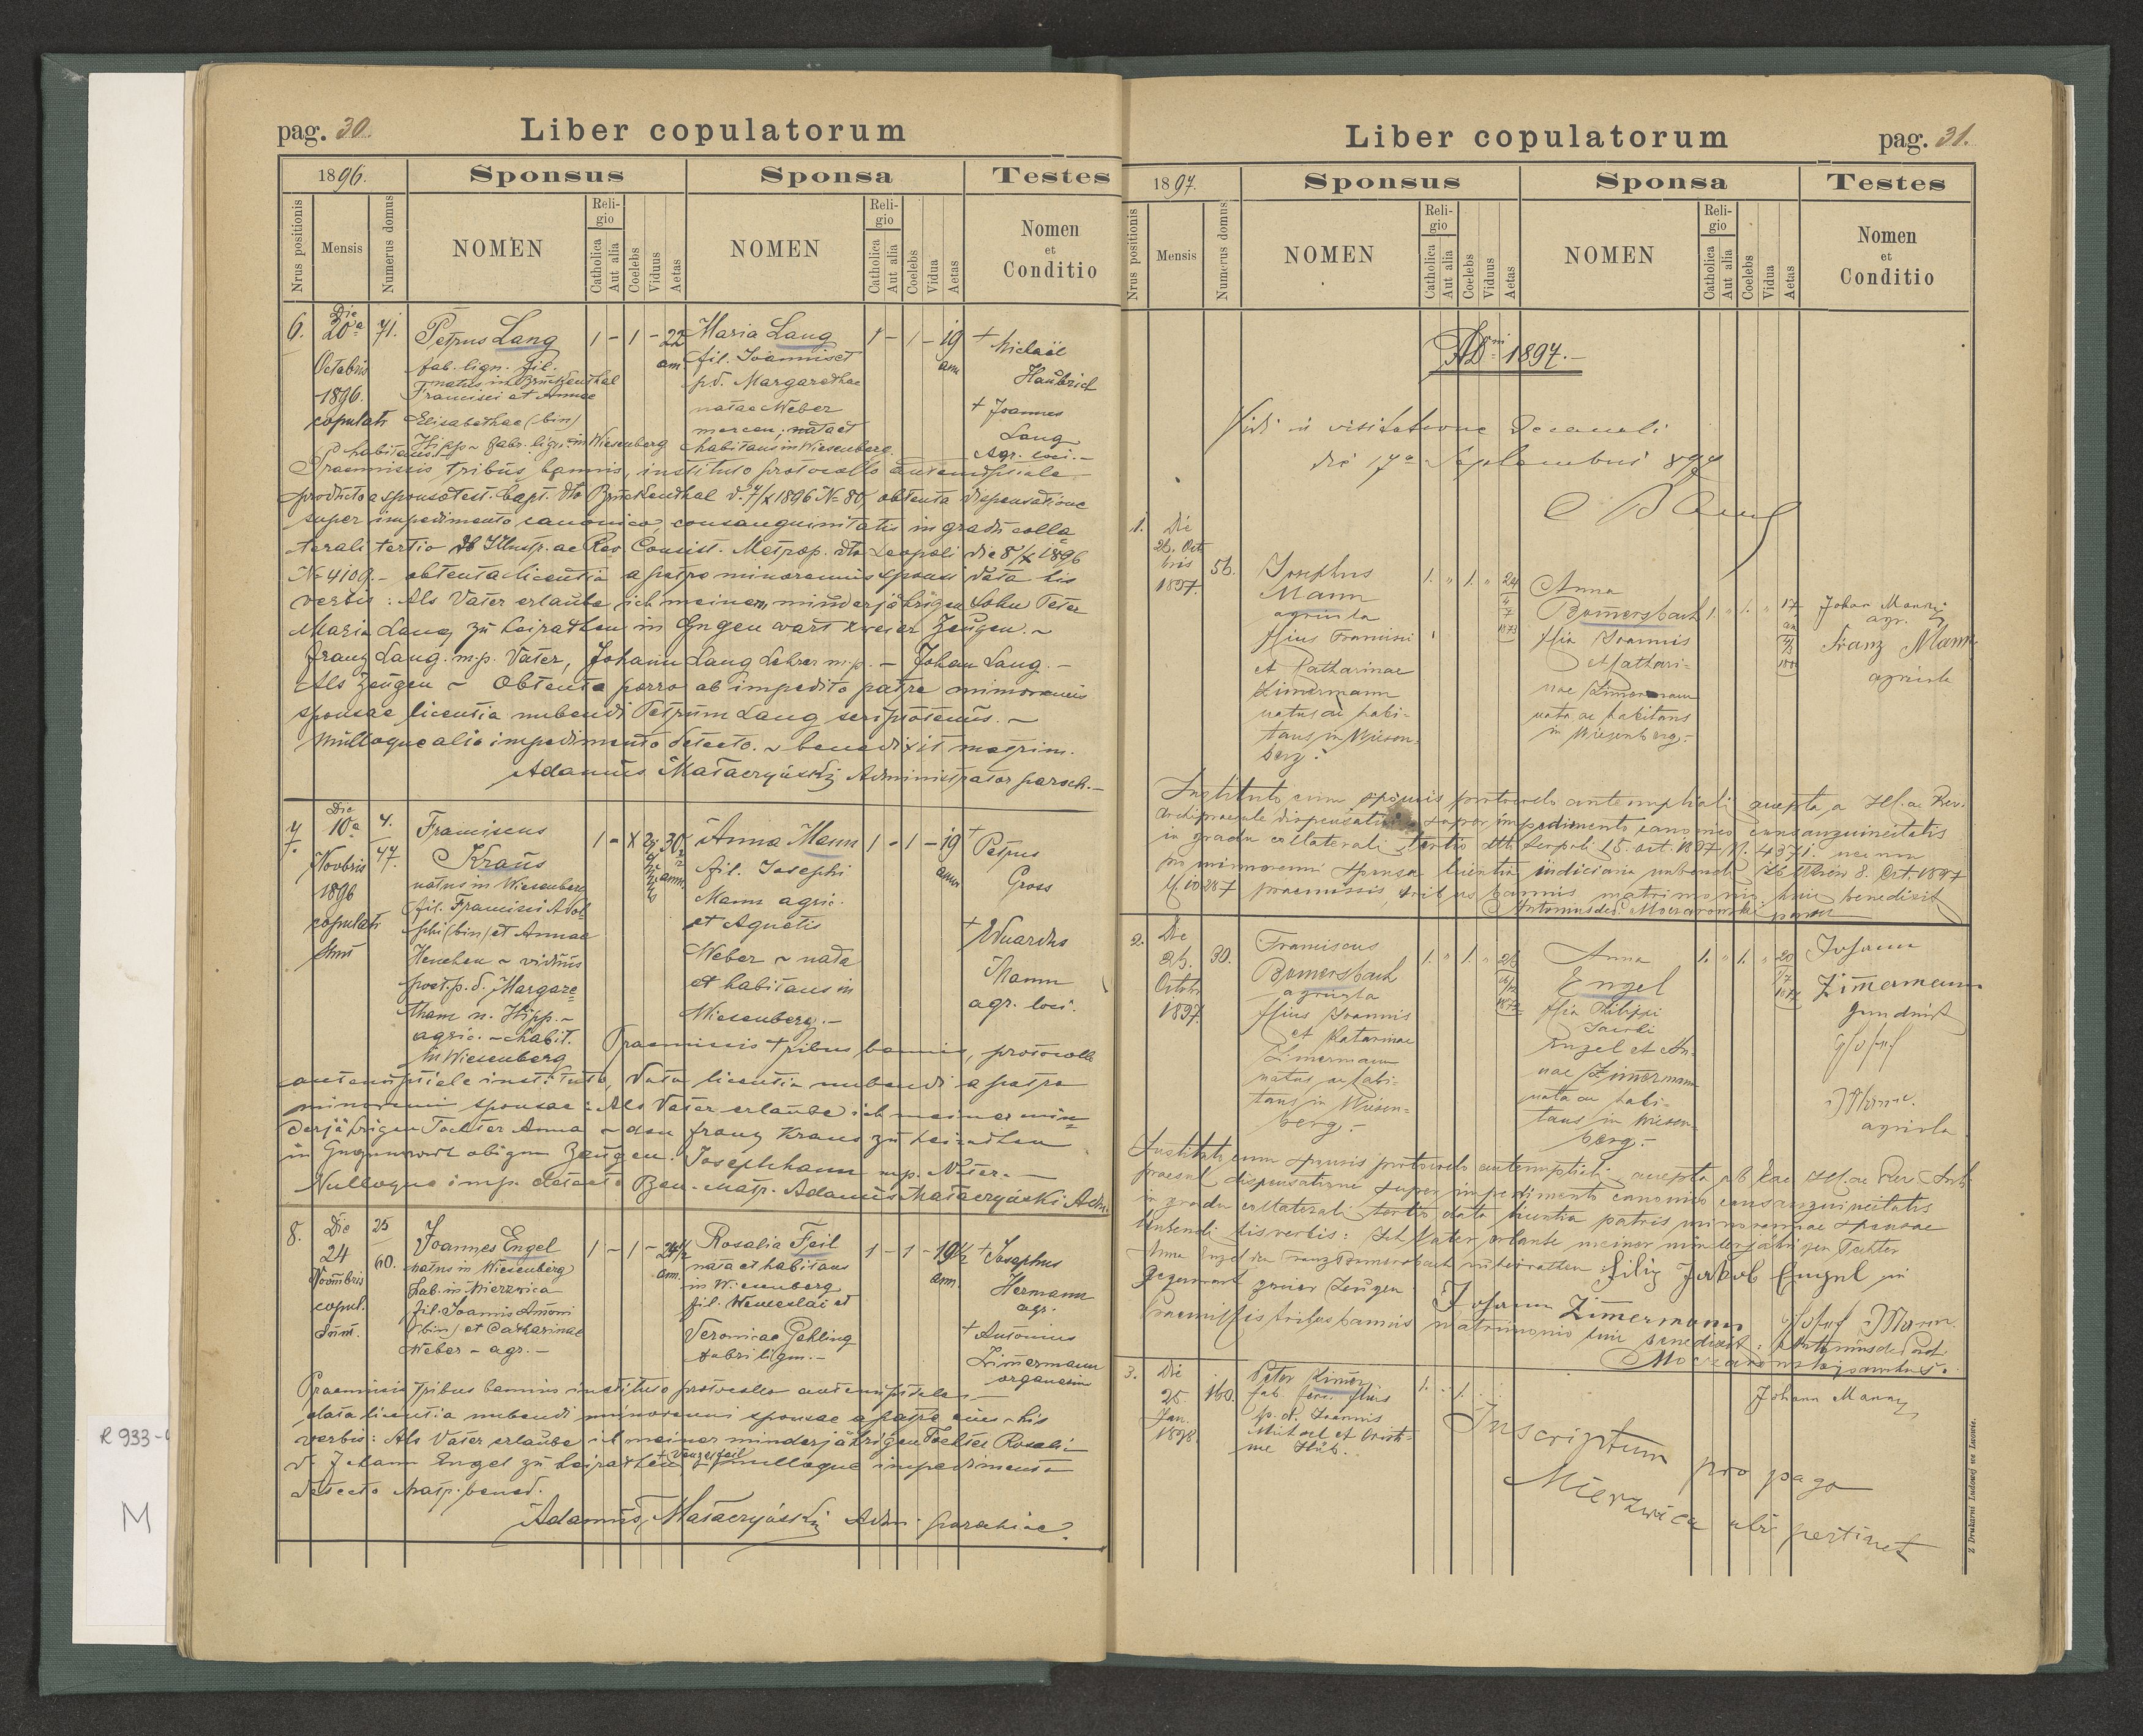 pag. 30.
Liber copulatorum
1896.
Sponsus
Sponsa
Testes
Nrus positionis
Mensis
Numerus domus
NOMEN
Religio
Catholica
Aut alia
Coelebs
Viduus
Aetas
NOMEN
Religio
Catholica
Aut alia
Coelebs
Vidua
Aetas
Nomen
et
Conditio
6.
Die
20a
Octobris
1896.
copulati
71.
Petrus Lang
fab. lign. fil.
natus in Brückenthal
Francisci et Annae
Elisabethae (bin)
Hipp ~ fabr. lign. in Wiesenberg
habitans
1 - 1 - 22
ann
Maria Lang
fil. Joannis et
p.d. Margarethae
natae Weber
mercen. nata et
habitans in Wiesenberg.
1 - 1 - 19
ann
+ Michaël
Haubrich
+ Joannes
Lang
Agr. loci.-
Praemissis tribus bannis, instituto protocollo antenuptiale
producto a sponso test. bapt. dto Brückenthal d. 7/X 1896 No 80, obtenta dispensatione
super impedimento canonico, consanguinitatis in gradu colla=
terali tertio ab Illustr. ac Rev. Consist. Metrop. dto Leopoli die 8/X 1896
No 4109.- obtenta licentia a patre minorennis sponsi data his
verbis: Als Vater erlaube ich meinem minderjährigen Sohn Peter
Maria Lang zu heirathen in Gegenwart zweier Zeugen. ~
Franz Lang. m.p. Vater, Johann Lang Lehrer m.p. - Johan Lang. -
Als Zeugen ~ Obtenta porro ab impedito patre minorennis
sponsae licentia nubendi Petrum Lang scripsotenus. ~
Nulloque alio impedimento detecto. ~ benedixit matrim.
Adamus Mataczyński Administrator paroch.-
7.
Die
10a
Novbris
1896
copulati
sunt
4.
47.
Franciscus
Kraus
natus in Wiesenberg
fil. Francisci Adol=
phi (bin) et Annae
Henchen ~ viduus
post. p.d. Margare=
tham n. Hipp.~
agric. ~ habit.
in Wiesenberg
30
ann.
Anna Mann
fil. Josephi
Mann agric.
et Agnetis
Weber ~ nata
et habitans in
Wiesenberg.-
1 - 1 - 19
ann
+ Petrus
Gross
+ Eduardus
Mann
agr. loci.
Praemissis tribus bannis, protocollo
antenuptiale instituto, data licentia nubendi a patre
minorenni sponsae: Als Vater erlaube ich meiner min=
derjährigen Tochter Anna ~ den Franz Kraus zu heirathen
in Gegenwart obigen Zeugen. Joseph Mann m.p. Vater.-
Nulloque imp. detecto Ben. Matr. Adamus Mataczyński Adm.
8.
Die
24
Novembris
copul.
sunt.
25
60.
Joannes Engel
natus in Wiesenberg
hab. in Mierzwica
fil. Joannis Antoni
(bin) et Catharinae
Weber - agr. -
1 - 1 - 24½
ann.
Rosalia Feil
nata et habitans
in Wiesenberg
fil. Wenceslai et
Veronicae Gehling
fabri lign.-
1 - 1 - 19½
ann.
+ Josephus
Hermann
agr.
+ Antonius
Zimmermann
organarius
Praemissis tribus bannis instituto protocollo antenuptiale -
data licentia nubendi minorenni sponsae a patre eius - his
verbis: Als Vater erlaube ich meiner minderjährigen Tochter Rosalia
d. Johann Engel zu heirathen + Venzel Feil nulloque impedimento
detecto Matr. bened.
Adamus Mataczyński Adm. parochiae.
Liber copulatorum
pag. 31.
1897.
Sponsus
Sponsa
Testes
Nrus positionis
Mensis
Numerus domus
NOMEN
Religio
Catholica
Aut alia
Coelebs
Viduus
Aetas
NOMEN
Religio
Catholica
Aut alia
Coelebs
Vidua
Aetas
Nomen
et
Conditio
ADni 1897.-
Vidi in visitatione Decanali
die 17a Septembris 897
1.
Die
26. Oct
bris
1897.
56.
Josephus
Mann
agricola
filius Francisci
et Catharinae
Zimermann
natus ac habi-
tans in Wiesen-
berg.
1. " 1. " 24
4
7
1873
Anna
Bomersbach
filia Joannis
et Kathari-
nae Zimermann
nata ac habitans
in Wiesenberg.-
1. " 1. " 17
an
Johan Mann
agr.
Franz Mann
agricola
Instituto cum sponsis protocolo antenuptiali accepta a Ill. ac Rev.
Archipraesule dispensatione super impedimento canonico consanguineitatis
in gradu collaterali tertio dtt. Leopoli 15. oct. 1897 N. 4371. nec non
pro minorenni sponsa licentia judiciaria nubendi 8. Oct. 1897
N. 10287 praemissis tribus bannis matrimonio huic benedixit
Antonius de Moczarowski
2.
Die
26.
Octob.
1897.
30.
Franciscus
Bomersbach
agricola
filius Joannis
et Katarinae
Zimermann
natus ac habi-
tans in Wiesen-
berg.-
1. " 1. "
Anna
Engel
filia Philippi
Jacobi
Engel et An-
nae Zimermann
nata ac habi-
tans in Wiesen-
berg.-
1. " 1. " 20
Johann
Zimermann
Josef
Mann.
agricola
Instituto cum sponsis protocolo antenuptiali accepta ab Ill. ac Rev Archi
praesul dispensatione super impedimento canonico consanguineitatis
in gradu collaterali tertio data licentia patris minorennae sponsae
nubendi his verbis: Ich Vater erlaube meiner minderjährigen Tochter
Anna Engel den Franz Bomersbach zu heirathen Filip Jakob Engel in
Gegenwart zweier Zeugen Johann Zimermann Josef Mann.
Praemissis tribus bannis matrimonio huic benedixit: Antonius de
Moczarowski parochus.
3.
Die
25.
Jan.
1898.
160.
Peter Zimer.
fab. ferr. filius
p. d. Joannis
Michael et Cristi-
nae Hüb..
1. . 1.
Johann Mann
Inscriptum pro pago
Mierzwica ubi pertinet
Z Drukarni Ludowej we Lwowie.
R 933-
M